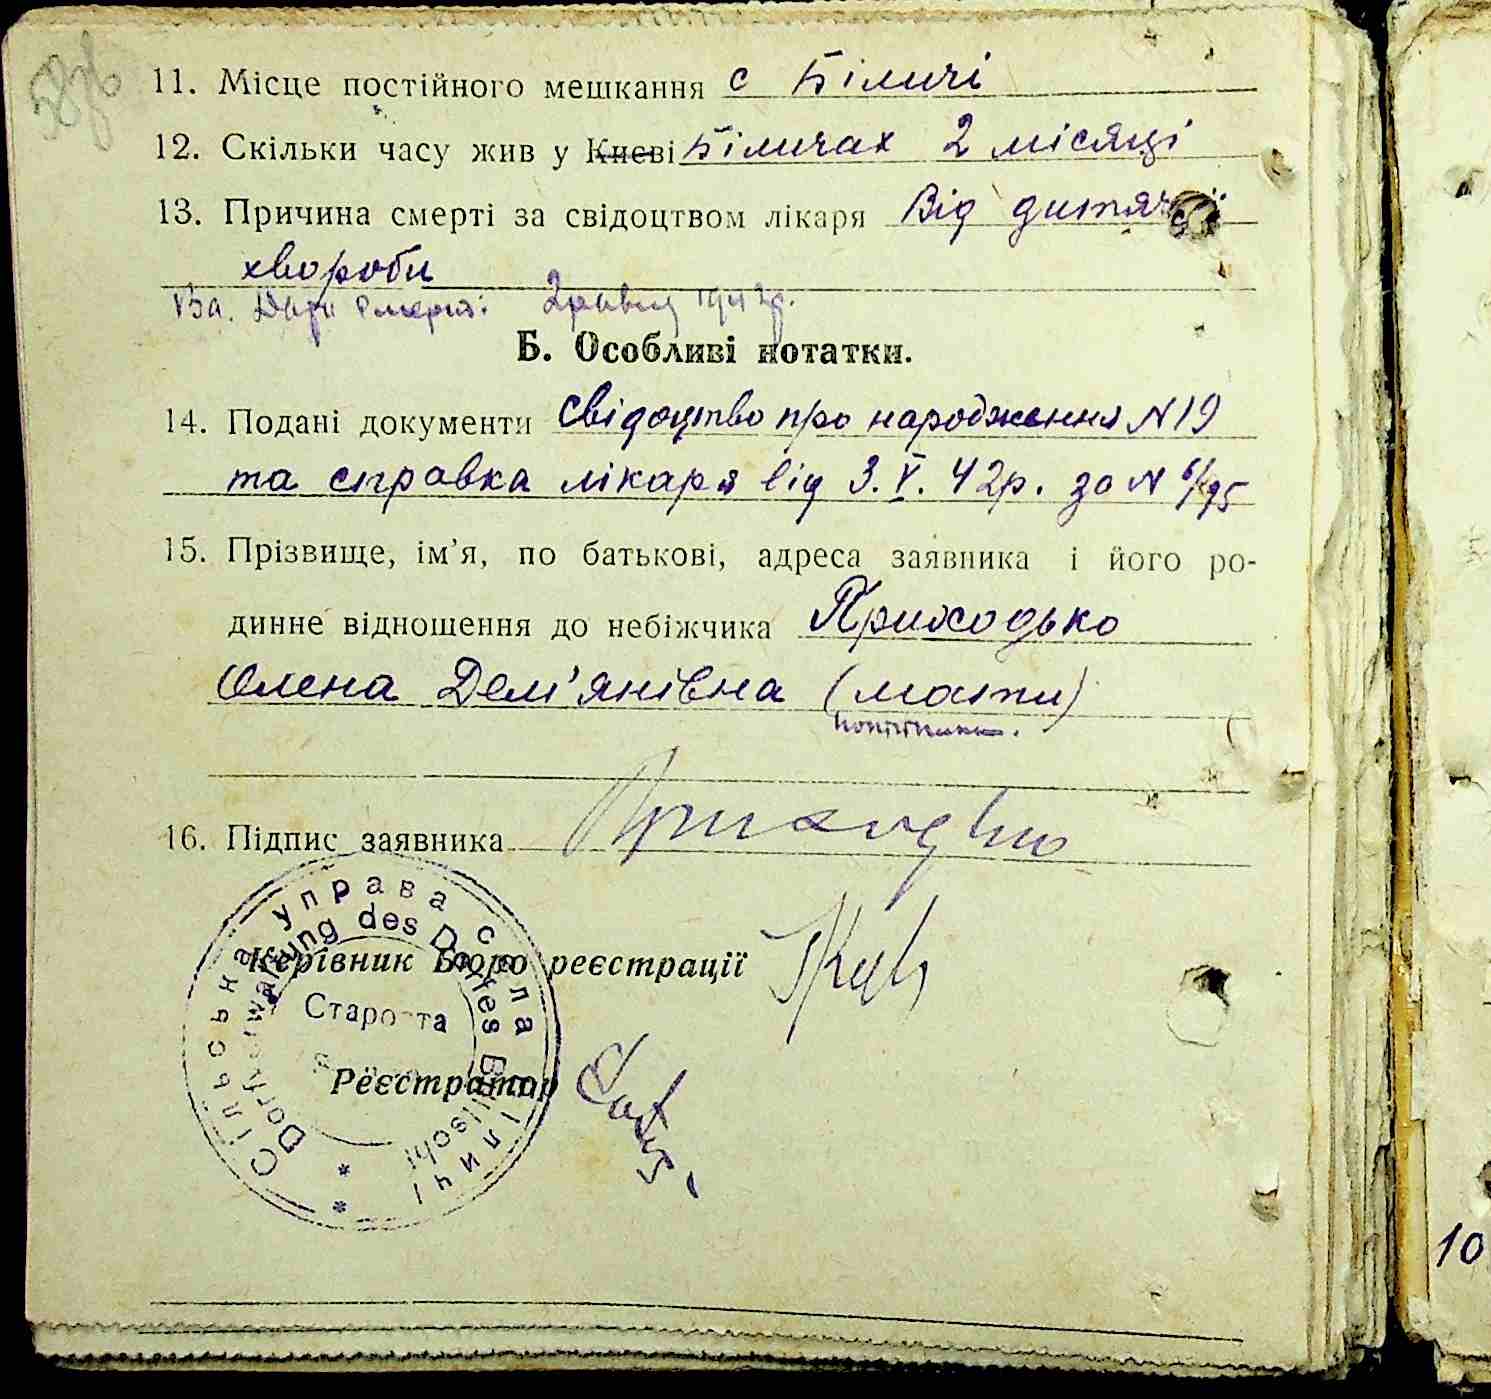 58зв
11. Місце постійного мешкання с Біличі
12. Скільки часу жив у Києві Біличах 2 місяці
13. Причина смерті за свідоцтвом лікаря Від дитячої
хвороби
13а. Дата смерті: 2 травня 1942р.
Б. Особливі нотатки.
14. Подані документи свідоцтво про народження N 19
та справка лікаря від 3.V.42р. за N 6/95
15. Прізвище, ім'я, по батькові, адреса заявника і його ро-
динне відношення до небіжчика Приходько
Олена Дем'янівна (мати)
16. Підпис заявника Приходько
Керівник Бюро реєстрації
Реєстратор
Сільська управа села Біличі
Dorfverwaltung des Dorfes Bilitschi
Староста
10